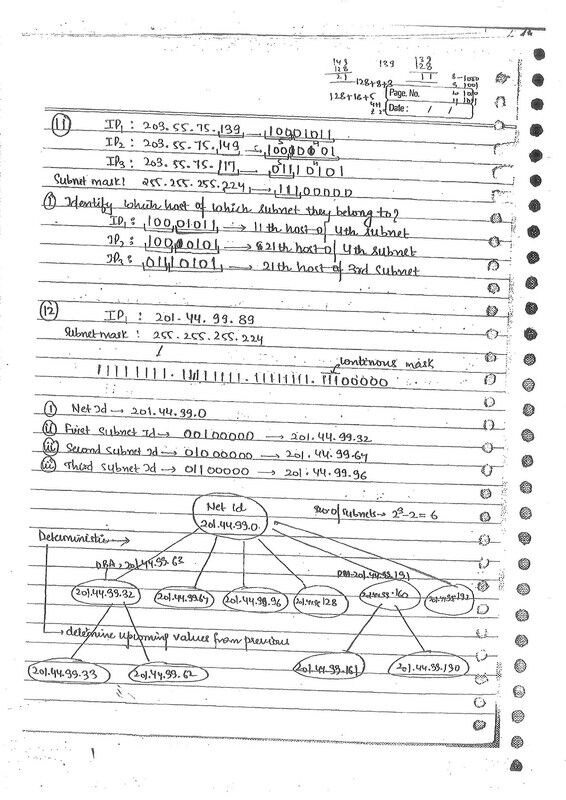 149 139 139
128 128
21 128+8+3 11 8-1000
9 1001
10 1010
11 1011
128+16+5
Page. No.
Date : / /
(11) IP₁ : 203.55.75.139 → 10001011
IP₂ : 203.55.75.149 → 10010101
IP₃ : 203.55.75.117 → 01110101
Subnet mask: 255.255.255.224 → 11100000
(i) Identify which host of which subnet they belong to?
IP₁ : 10001011 → 11th host of 4th subnet
IP₂ : 10010101 → 21th host of 4th subnet
IP₃ : 01110101 → 21th host of 3rd subnet
(12) IP₁ : 201.44.99.89
Subnet mask : 255.255.255.224
continous mask
11111111.11111111.11111111.11100000
(i) Net Id → 201.44.99.0
(ii) First Subnet Id → 00100000 → 201.44.99.32
(iii) Second Subnet Id → 01000000 → 201.44.99.64
(iii) Third Subnet Id → 01100000 → 201.44.99.96
Net Id
201.44.99.0
no of subnets → 2³-2=6
Deterministic →
DBA → 201.44.99.63
DBA-201.44.99.191
201.44.99.32 201.44.99.64 201.44.99.96 201.44.99.128 201.44.99.160 201.44.99.192
→ determine upcoming values from previous
201.44.99.33 201.44.99.62 201.44.99.161 201.44.99.190